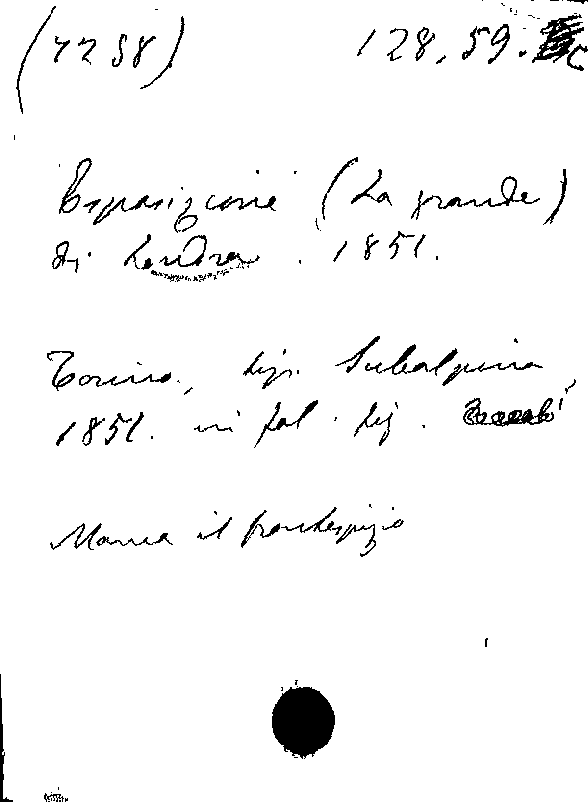 (7238) 128.59.
Esposizione (La grande)
di Londra. 1851.
Torino, tip. Subalpina,
1851. in fol. fig.
Manca il frontespizio